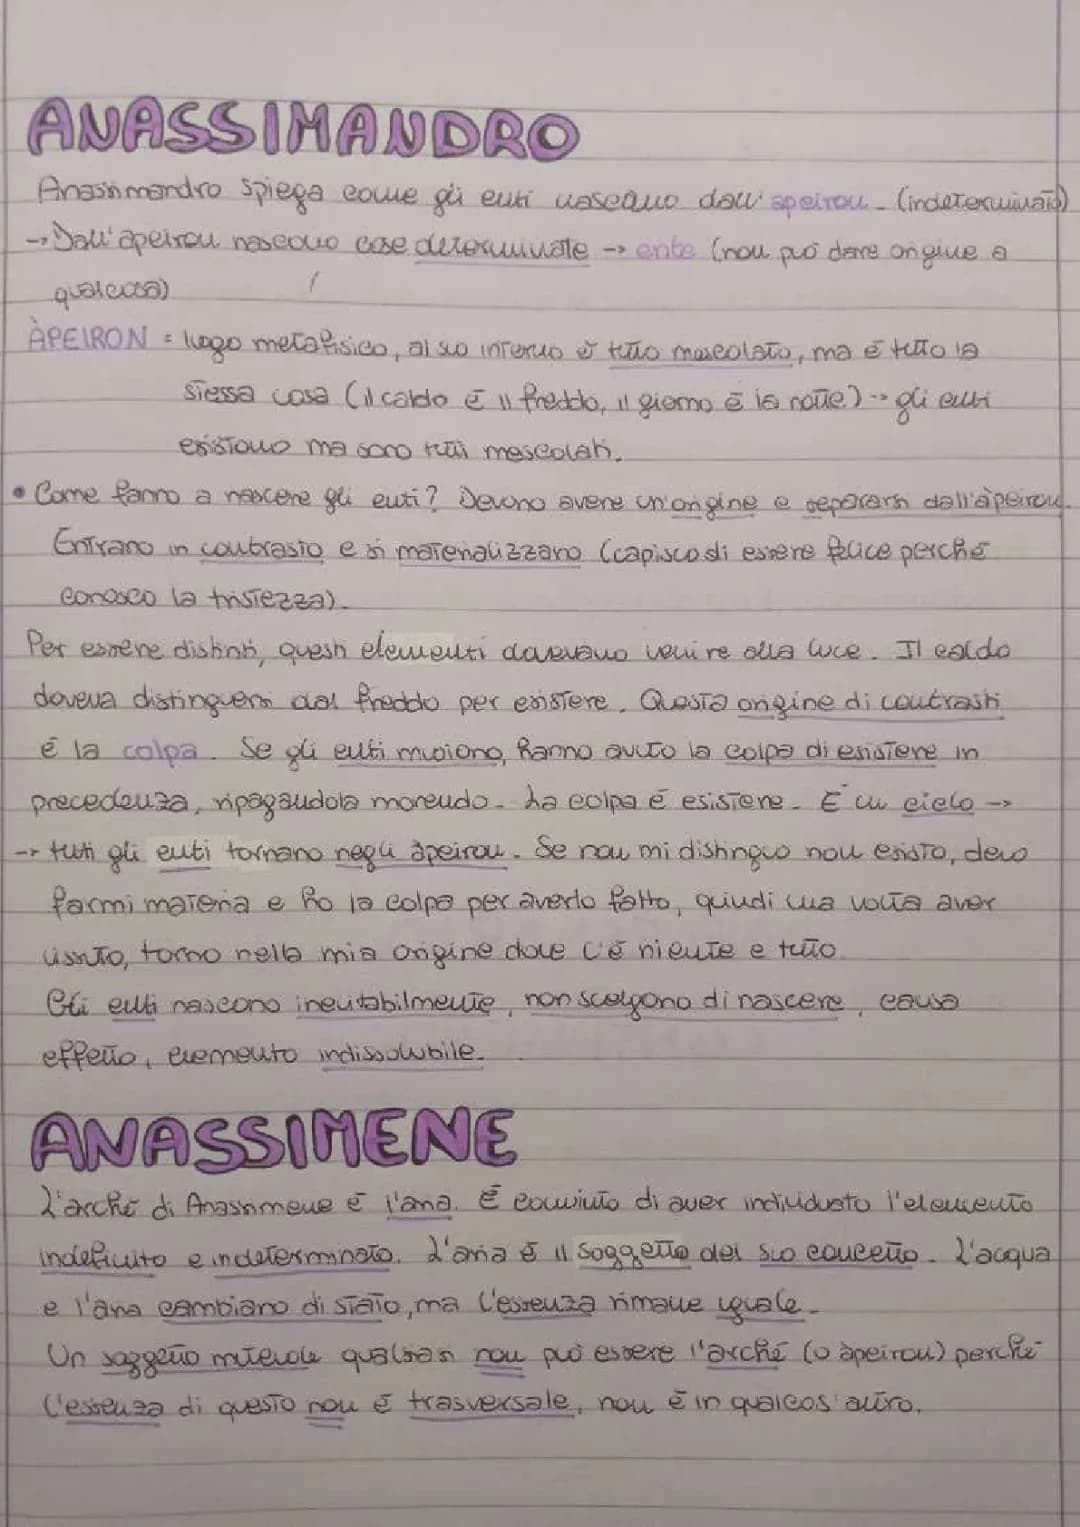 ANASSIMANDRO
Anassimandro spiega come gli enti nascano dall'apeiron - (indeterminato)
→ Dall'apeiron nascono cose determinate → ente (non può dare origine a
qualcosa)
ÀPEIRON = luogo metafisico, al suo interno è tutto mescolato, ma è tutto la
stessa cosa (il caldo è il freddo, il giorno è la notte) → gli enti
esistono ma sono tutti mescolati.
• Come fanno a nascere gli enti? Devono avere un'origine e separarsi dall'àpeiron.
Entrano in contrasto e si materializzano (capisco di essere felice perché
conosco la tristezza).
Per essere distinti, questi elementi dovevano venire alla luce. Il caldo
doveva distinguersi dal freddo per esistere. Questa origine di contrasti
è la colpa. Se gli enti muoiono, hanno avuto la colpa di esistere in
precedenza, ripagandola morendo. La colpa è esistere. È un ciclo →
→ tutti gli enti tornano negli àpeiron. Se non mi distinguo non esisto, devo
farmi materia e ho la colpa per averlo fatto, quindi una volta aver
vissuto, torno nella mia origine dove c'è niente e tutto.
Gli enti nascono inevitabilmente, non scelgono di nascere, causa
effetto, elemento indissolubile.
ANASSIMENE
L'archè di Anassimene è l'aria. È convinto di aver individuato l'elemento
indefinito e indeterminato. L'aria è il soggetto del suo concetto. L'acqua
e l'aria cambiano di stato, ma l'essenza rimane uguale.
Un soggetto materiale qualsiasi non può essere l'archè (o àpeiron) perché
l'essenza di questo non è trasversale, non è in qualcos'altro.